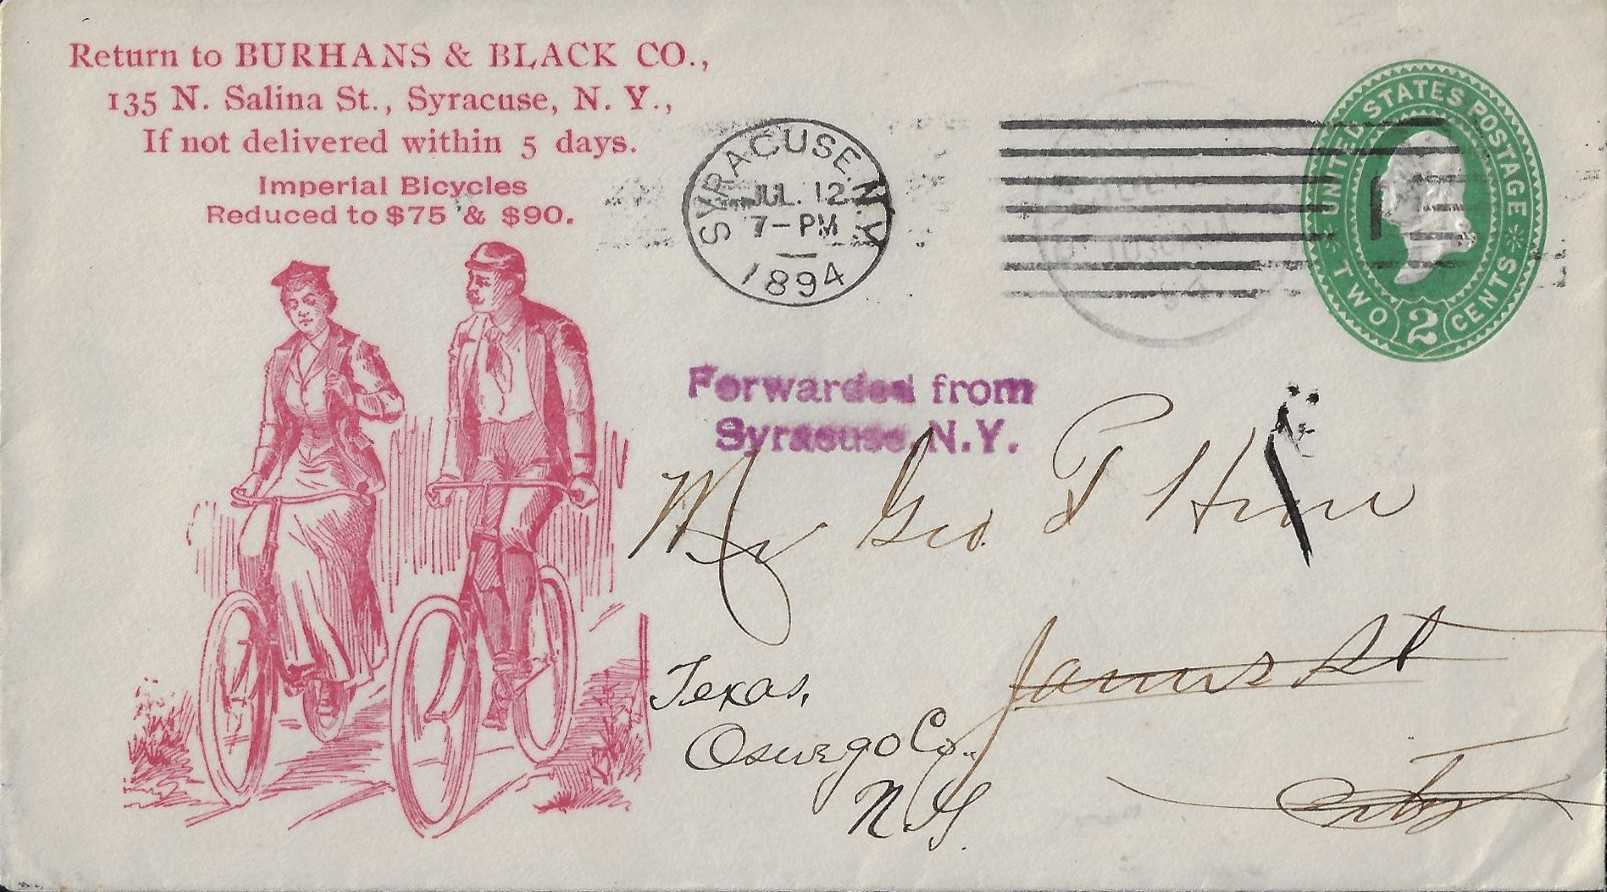 Return to BURHANS & BLACK CO.,
135 N. Salina St., Syracuse, N. Y.,
If not delivered within 5 days.
Imperial Bicycles
Reduced to $75 & $90.
SYRACUSE, N.Y.
JUL. 12
7-PM
1894
1
UNITED STATES POSTAGE
TWO 2 CENTS
Forwarded from
Syracuse, N.Y.
Mr Geo P
James St
City
Texas,
Oswego Co.
N.Y.